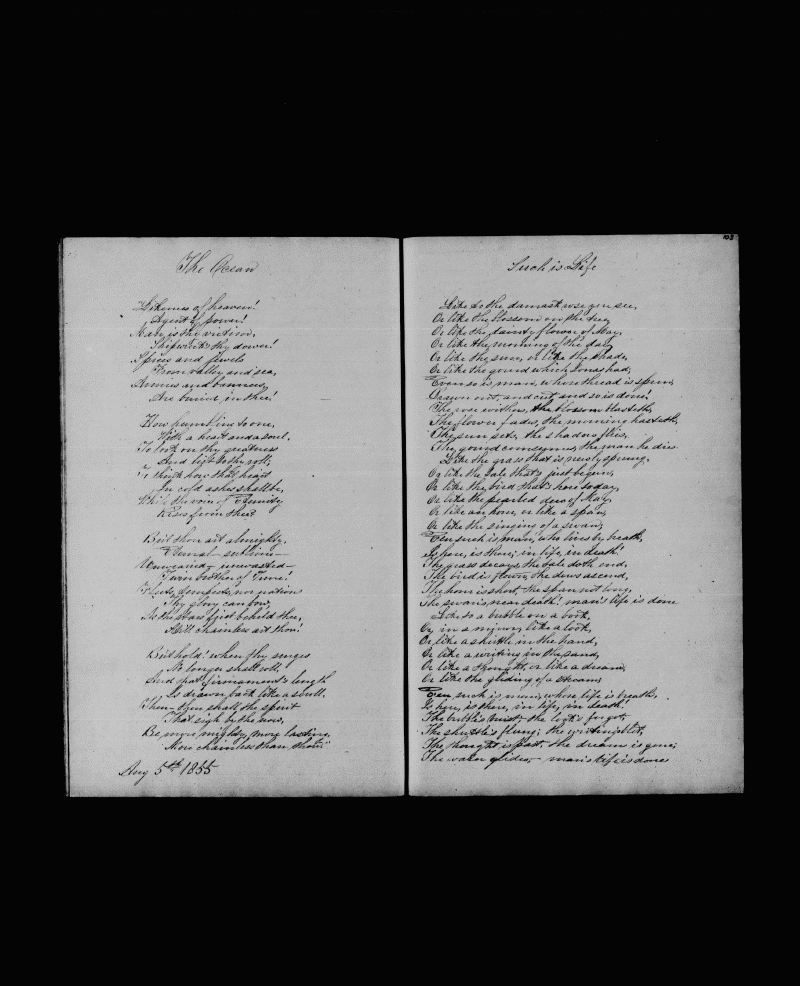 The Ocean
Likeness of heaven!
Agent of power!
Man is thy victim,
Shipwrecks thy dower!
Spices and jewels
From valley and sea,
Armies and banners
Are buried in thee!
How humbling to one,
With a heart and a soul,
To look on thy greatness
And list to thy roll;
To think how that heart
In cold ashes shall be,
While the voice of Eternity
Rises from thee?
But thou art almighty,
Eternal – sublime –
Unwearied – unwasted –
Twin brother of Time!
Fleets, tempests, nor nations
Thy glory can bow;
As the stars first beheld thee,
Still chainless art thou!
But hold! when thy surges
No longer shall roll,
And that firmament's length
Is drawn back like a scroll,
Then – then shall the spirit
That sigh by thee now,
Be more mighty, more lasting,
More chainless than thou!
Aug 5th 1855
103
Such is Life
Like to the damask rose you see,
Or like the blossom on the tree,
Or like the dainty flower of May,
Or like the morning of the day
Or like the sun, or like the shade,
Or like the gourd which Jonas had,
Even so is man, whose thread is spun,
Drawn out, and cut, and so is done!
The rose withers, the blossom blasteth,
The flower fades, the morning hasteth,
The sun sets, the shadow flies,
The gourd consumes, the man he dies.
Like the grass that is newly sprung,
Or like the tale that's just begun,
Or like the bird that's here today,
Or like the pearled dew of May,
Or like an hour, or like a span,
Or like the singing of a swan,
Even such is man, who lives by breath,
Is here, is there, in life, in death!
The grass decays, the tale doth end,
The bird is flown, the dews ascend,
The hour is short, the span not long,
The swan's near death! man's life is done
Like to a bubble on a book,
Or, in a mirror, like a look,
Or like a shuttle in the hand,
Or like a writing in the sand,
Or like a thought, or like a dream,
Or like the gliding of a stream,
Even such is man, whose life is breath,
Is here, is there, in life, in death!
The bubble's bust, the look's forgot,
The shuttle's flung, the writing's blot,
The thought is past, the dream is gone,
The water glides, – man's life is done